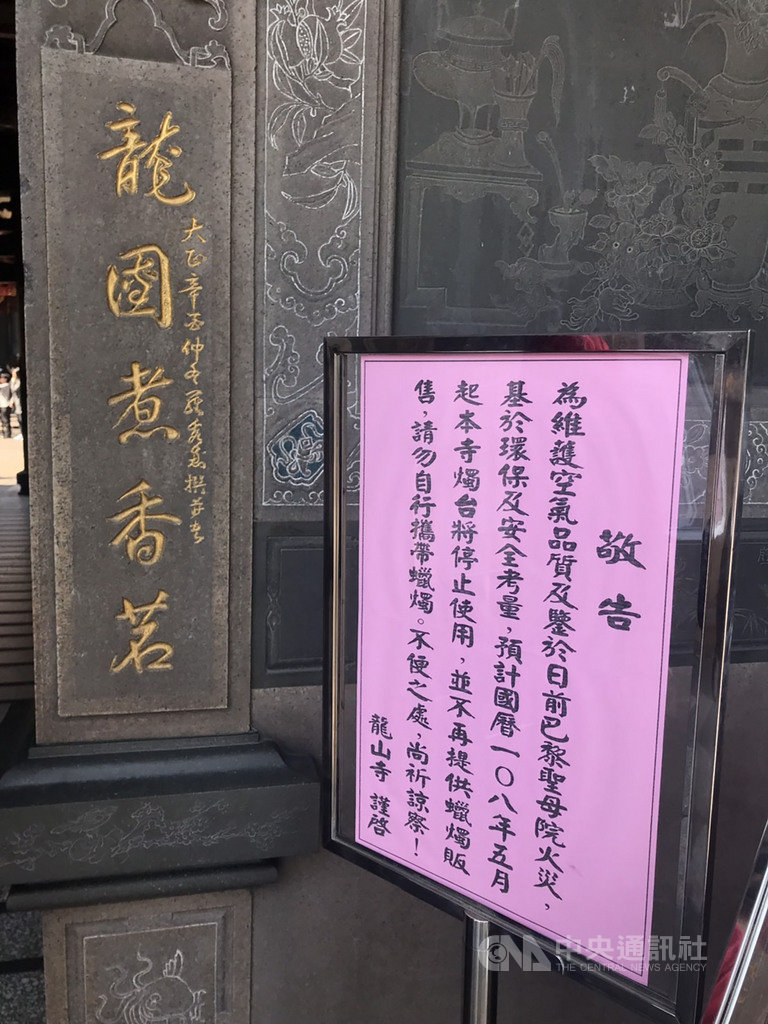 敬告
為維護空氣品質及鑒於日前巴黎聖母院火災，
基於環保及安全考量，預計國曆一〇八年五月
起本寺燭台將停止使用，並不再提供蠟燭販
售，請勿自行攜帶蠟燭。不便之處，尚祈諒察！
龍山寺 謹啓
大正辛酉仲冬羅秀惠撰并書
龍國煮香茗
中央通訊社
THE CENTRAL NEWS AGENCY
CNA